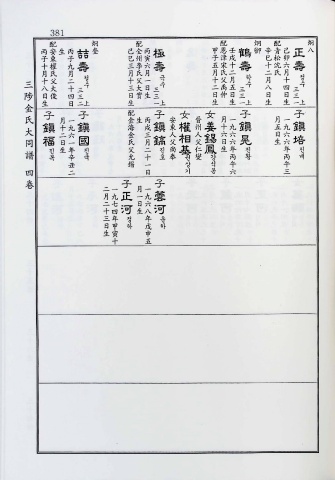 381
炯八
正壽 정수
三三二 上
己卯六月十四日生
配青松沈氏
辛巳十二月八日生
子 鎭培 진배
一九六六年丙午三
月五日生
炯卿
鶴壽 학수
三三一 上
壬戌十二月五日生
配恩津宋氏父
甲子五月十二日生
子 鎭晃 진황
一九六六年丙午六
月十六日生
女 姜錫鳳 강석봉
晉州人父仁燮
女 權相基 권상기
安東人父尙奉
極壽 극수
三三一 上
丙寅六月一日生
配全州李氏父大
己巳三月十三日生
子 鎭鎬 진호
丙戌三月二十一日
生
配金海金氏父光錫
子 蓉河 용하
一九六八年戊申五
月一日生
子 正河 정하
一九七四年甲寅十
二月二十三日生
喆壽 철수
三三二 上
丙子九月二十四日
生
配安東權氏父大俊
丙子十月十八日生
子 鎭國 진국
一九六一年辛丑二
月十二日生
子 鎭福 진복
三陟金氏大同譜 四卷